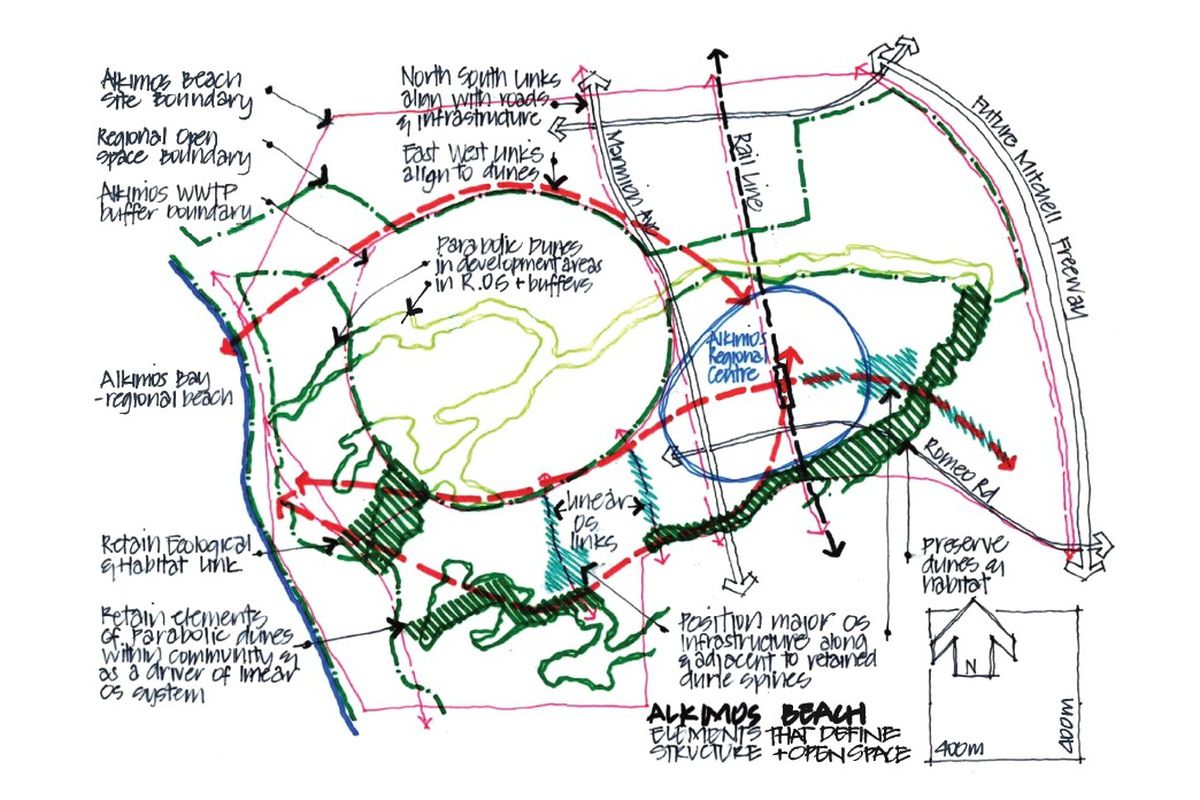 Alkimos Beach
Site Boundary
Regional Open
Space Boundary
Alkimos WWTP
buffer boundary
North South Links
align with roads
& infrastructure
East West Links
align to dunes
Parabolic Dunes
in development areas
in R.OS + buffers
Marmion Av
Rail Line
Future Mitchell Freeway
Alkimos
Regional
Centre
Alkimos Bay
- regional beach
Romeo Rd
Linear
OS
links
Retain Ecological
& Habitat Link
Retain elements
of Parabolic dunes
within community &
as a driver of linear
OS system
Preserve
dunes &
habitat
Position major OS
infrastructure along
& adjacent to retained
dune spines
ALKIMOS BEACH
ELEMENTS THAT DEFINE
STRUCTURE + OPEN SPACE
N
400m
400m